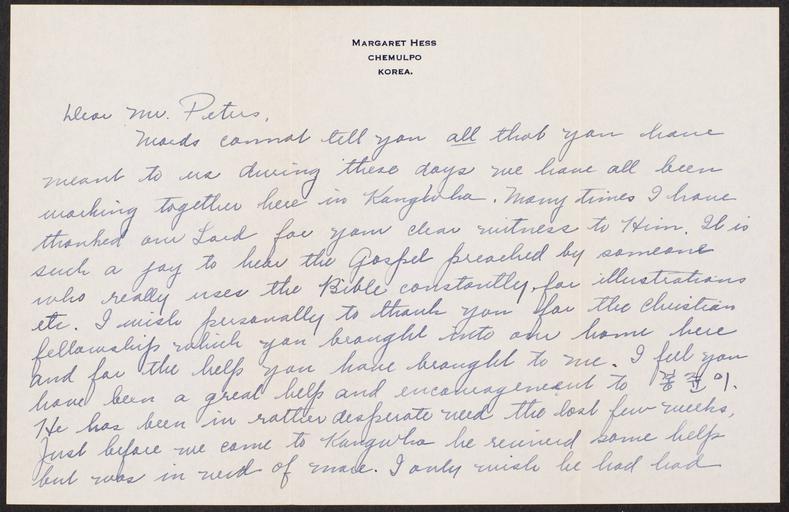 MARGARET HESS
CHEMULPO
KOREA.
Dear Mr. Peters,
Words cannot tell you all that you have
meant to us during these days we have all been
working together here in Kangwha. Many times I have
thanked our Lord for your clear witness to Him. It is
such a joy to hear the Gospel preached by someone
who really uses the Bible constantly for illustrations
etc. I wish personally to thank you for the Christian
fellowship which you brought into our home here
and for the help you have brought to me. I feel you
have been a great help and encouragement to 이.
He has been in rather desperate need the last few weeks.
Just before we came to Kangwha he received some help
but was in need of more. I only wish he had had